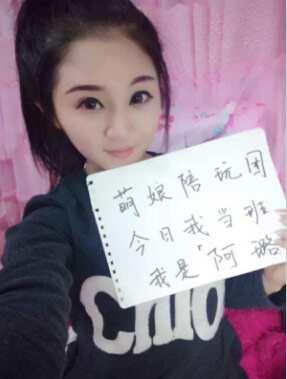 萌娘陪玩团
今日我当班
我是"阿璐